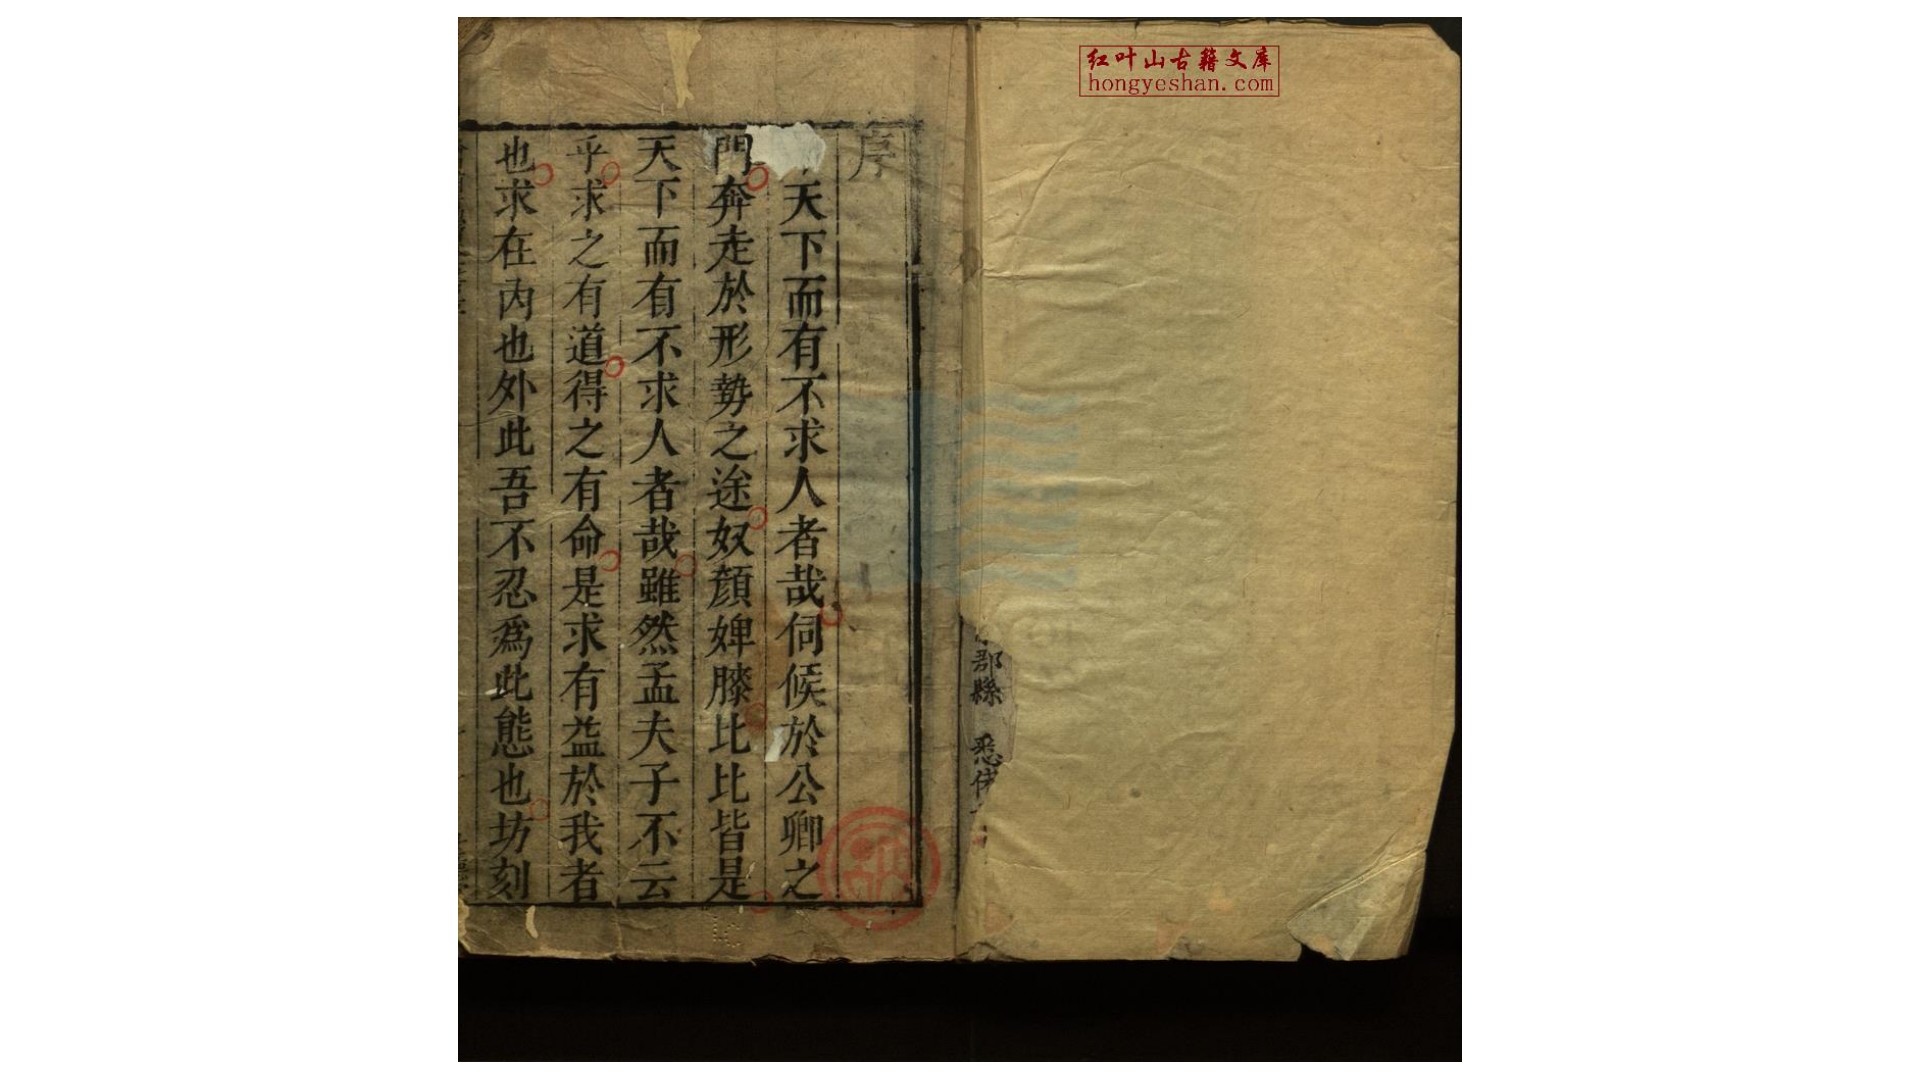 红叶山古籍文库
hongyeshan.com
郡縣 悉
序
天下而有不求人者哉伺候於公卿之
門奔走於形勢之途奴顏婢膝比比皆是
天下而有不求人者哉雖然孟夫子不云
乎求之有道得之有命是求有益於我者
也求在內也外此吾不忍為此態也坊刻